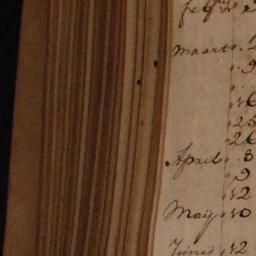 Maart
9
16
25
26
April . 8
9
12
May . 10
Junij . 12